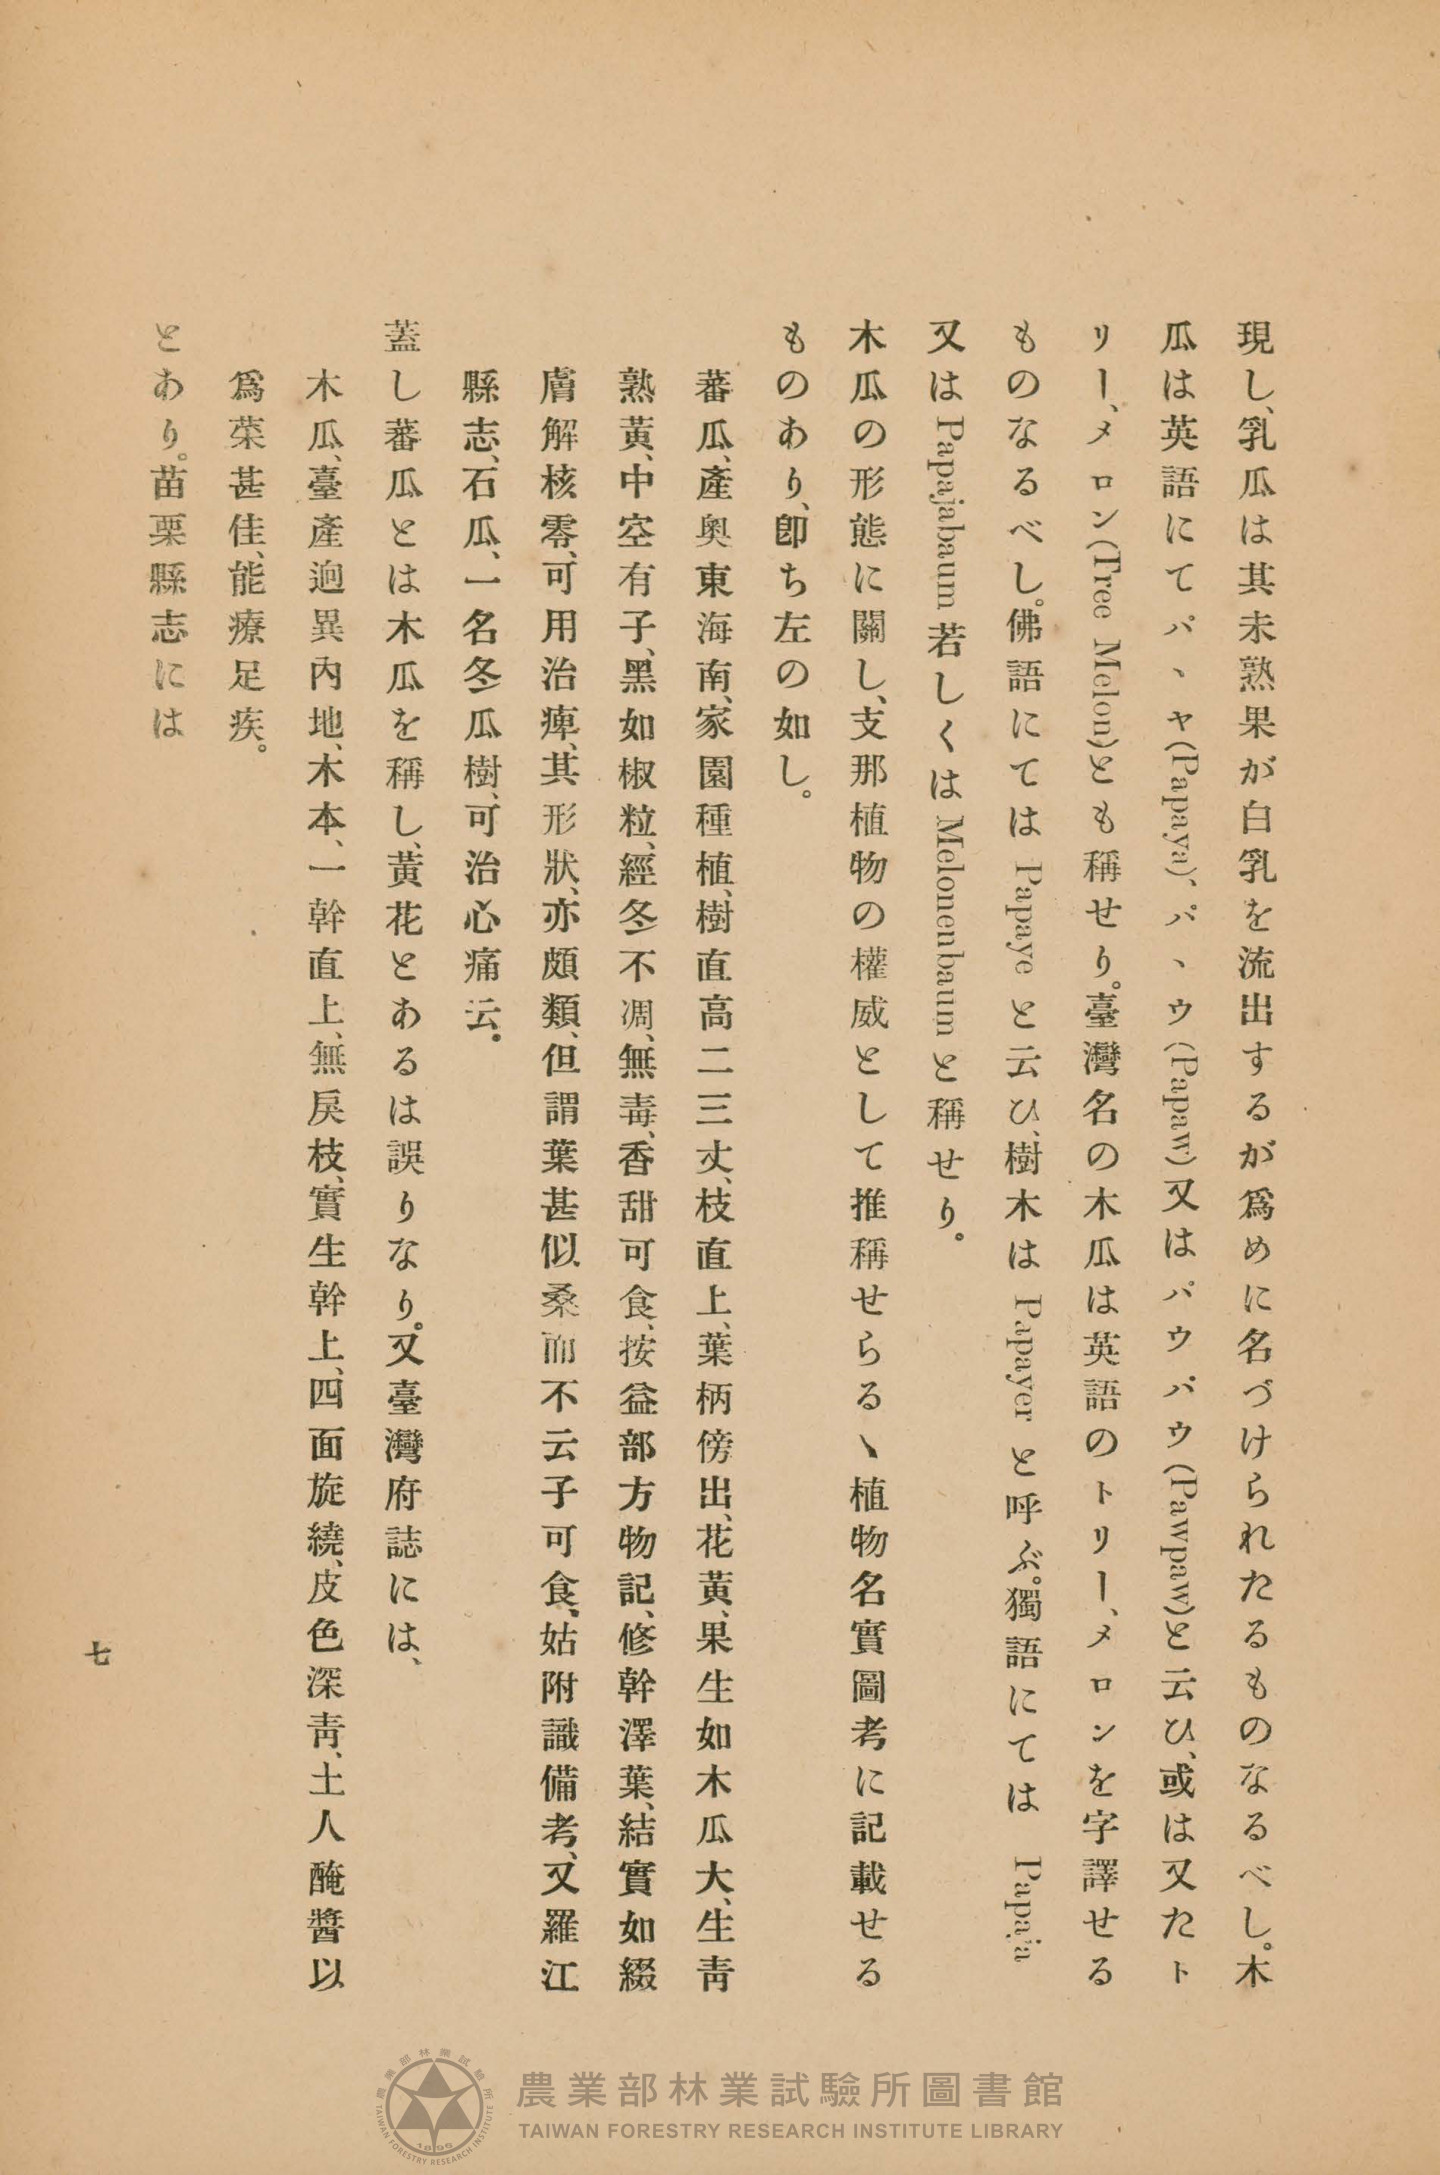 現し、乳瓜は其未熟果が白乳を流出するが爲めに名づけられたるものなるべし。木
瓜は英語にてパヽヤ(Papaya)、パヽウ(Papaw)又はパウパウ(Pawpaw)と云ひ、或は又たト
リー、メロン(Tree Melon)とも稱せり。臺灣名の木瓜は英語のトリー、メロンを字譯せる
ものなるべし。佛語にては Papaye と云ひ、樹木は Papayer と呼ぶ。獨語にては Papaja
又は Papajabaum 若しくは Melonenbaum と稱せり。
木瓜の形態に關し、支那植物の權威として推稱せらるヽ植物名實圖考に記載せる
ものあり、卽ち左の如し。
蕃瓜、產奥東海南、家園種植、樹直高二三丈、枝直上、葉柄傍出、花黃、果生如木瓜大、生靑
熟黃、中空有子、黑如椒粒、經冬不凋、無毒、香甜可食、按益部方物記、修幹澤葉、結實如綴
膚解核零、可用治痺、其形狀、亦頗類、但謂葉甚似桑而不云子可食、姑附識備考、又羅江
縣志、石瓜、一名冬瓜樹、可治心痛云。
蓋し蕃瓜とは木瓜を稱し、黃花とあるは誤りなり。又臺灣府誌には、
木瓜、臺產迥異內地、木本、一幹直上、無戾枝、實生幹上、四面旋繞、皮色深靑、土人醃醬以
爲菜甚佳、能療足疾。
とあり。苗栗縣志には
七
農業部林業試驗所圖書館
TAIWAN FORESTRY RESEARCH INSTITUTE LIBRARY
農業部林業試驗所
TAIWAN FORESTRY RESEARCH INSTITUTE
1896